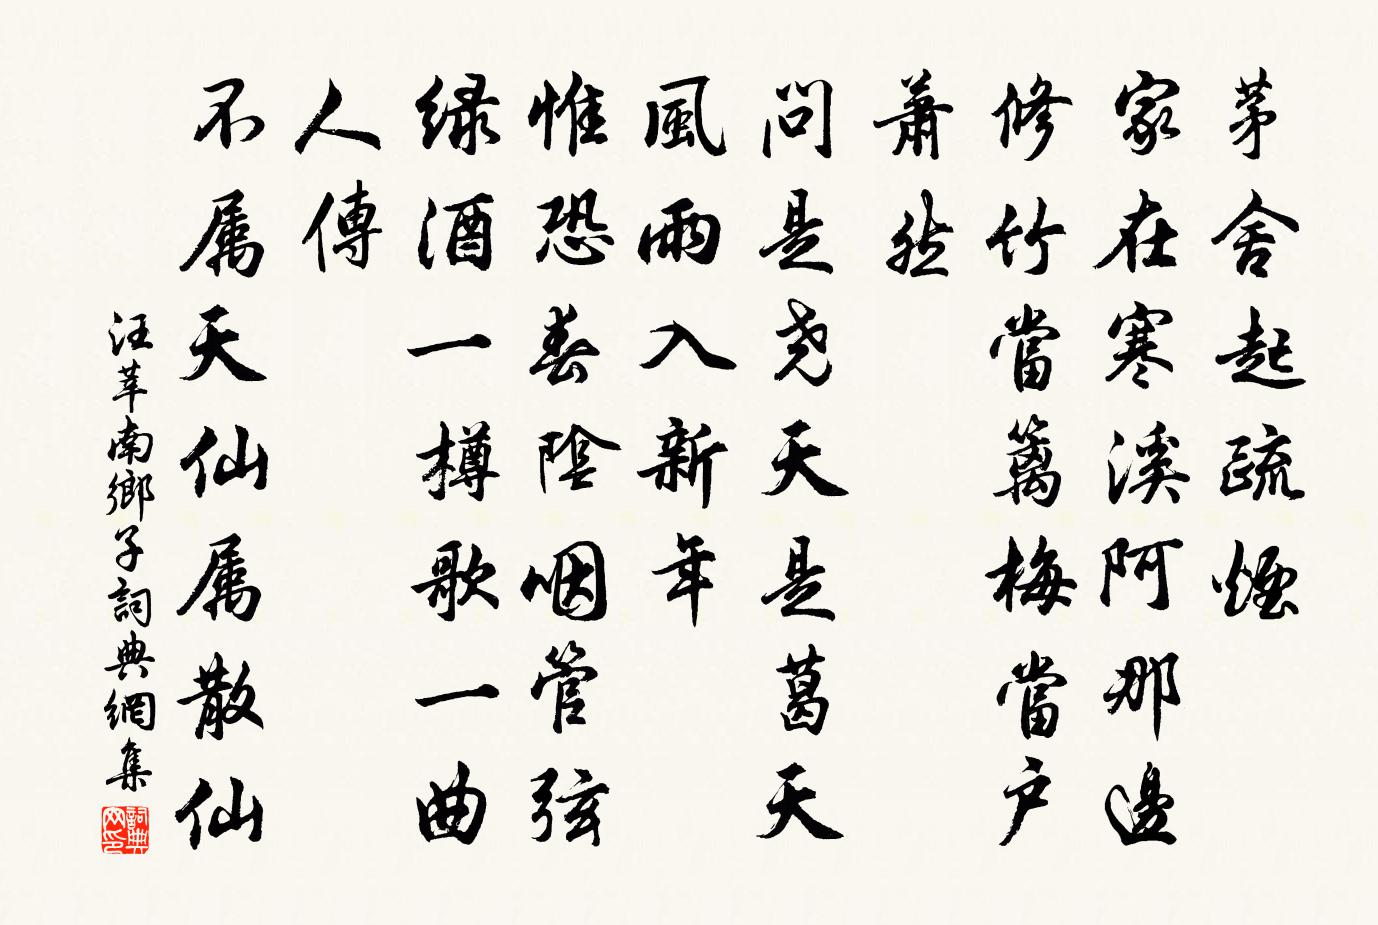 茅舍起疏煙
家在寒溪阿那邊
修竹當籬梅當户
蕭然
問是尧天是葛天
風雨入新年
惟恐春陰咽管弦
緑酒一樽歌一曲
人傳
不属天仙属散仙
汪莘南鄉子詞典網集
詞典网印